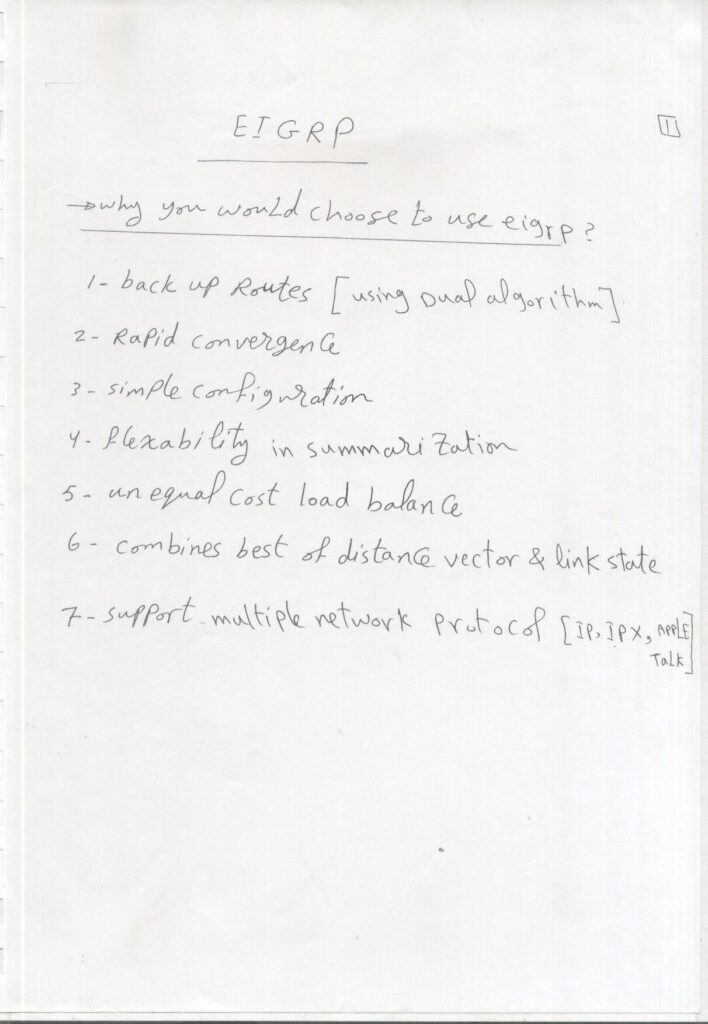 EIGRP
1
→ why you would choose to use eigrp?
1- back up Routes [using Dual algorithm]
2- Rapid convergence
3- simple configuration
4- flexability in summarization
5- unequal cost load balance
6- combines best of distance vector & link state
7- support multiple network protocol [IP, IPX, APPLE
Talk]